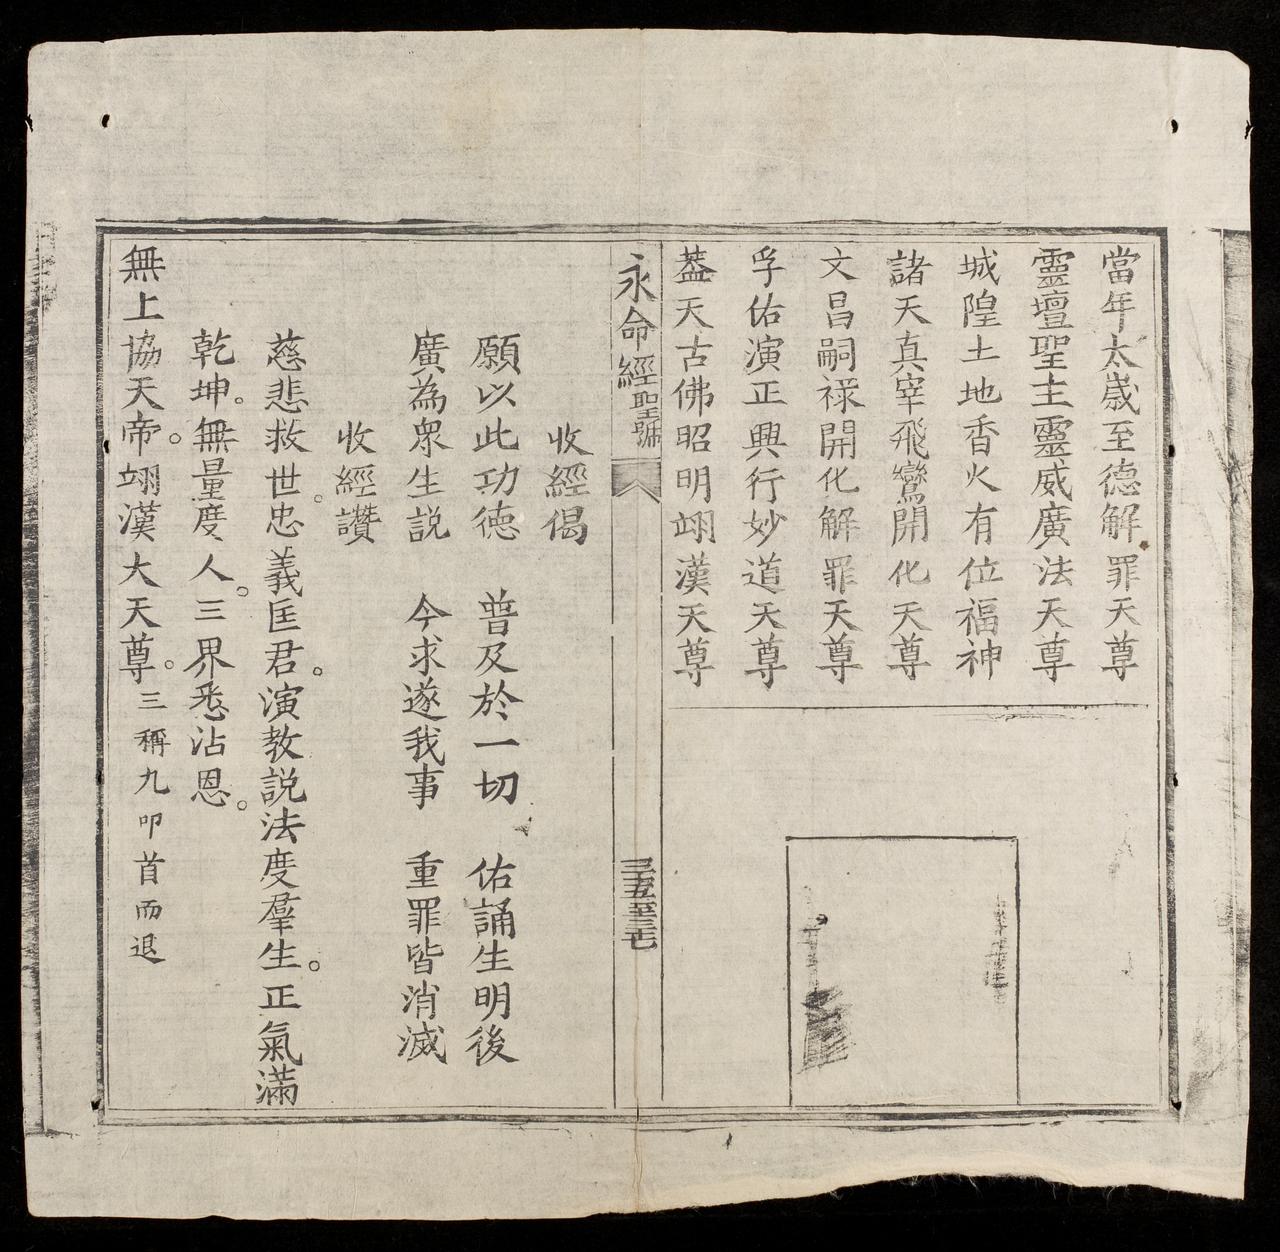 當年太歲至德解罪天尊
靈壇聖主靈威廣法天尊
城隍土地香火有位福神
諸天真宰飛鸞開化天尊
文昌嗣祿開化解罪天尊
孚佑演正興行妙道天尊
蓋天古佛昭明翊漢天尊
永命經 聖號 三十五至三十七
收經偈
願以此功德 普及於一切 佑誦生明後
廣為衆生説 今求遂我事 重罪皆消滅
收經讚
慈悲救世。忠義匡君。演教説法度羣生。正氣滿
乾坤。無量度人。三界悉沾恩。
無上協天帝。翊漢大天尊。三稱九叩首而退